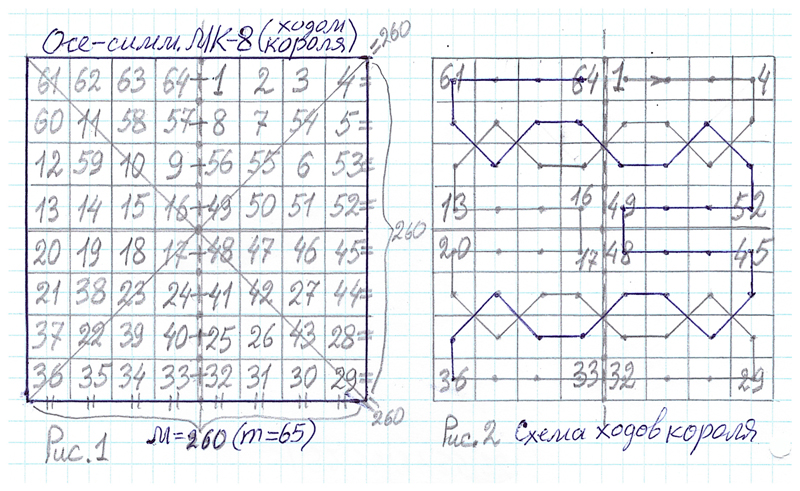 Осе-симм. МК-8 (ходом короля)
=260
61 62 63 64 1 2 3 4=
60 11 58 57 8 7 54 5=
12 59 10 9 56 55 6 53=
13 14 15 16 49 50 51 52=
20 19 18 17 48 47 46 45=
21 38 23 24 41 42 27 44=
37 22 39 40 25 26 43 28=
36 35 34 33 32 31 30 29=
260
=260
М=260 (m=65)
Рис. 1
61 64 1 4
13 16 49 52
20 17 48 45
36 33 32 29
Рис. 2 Схема ходов короля